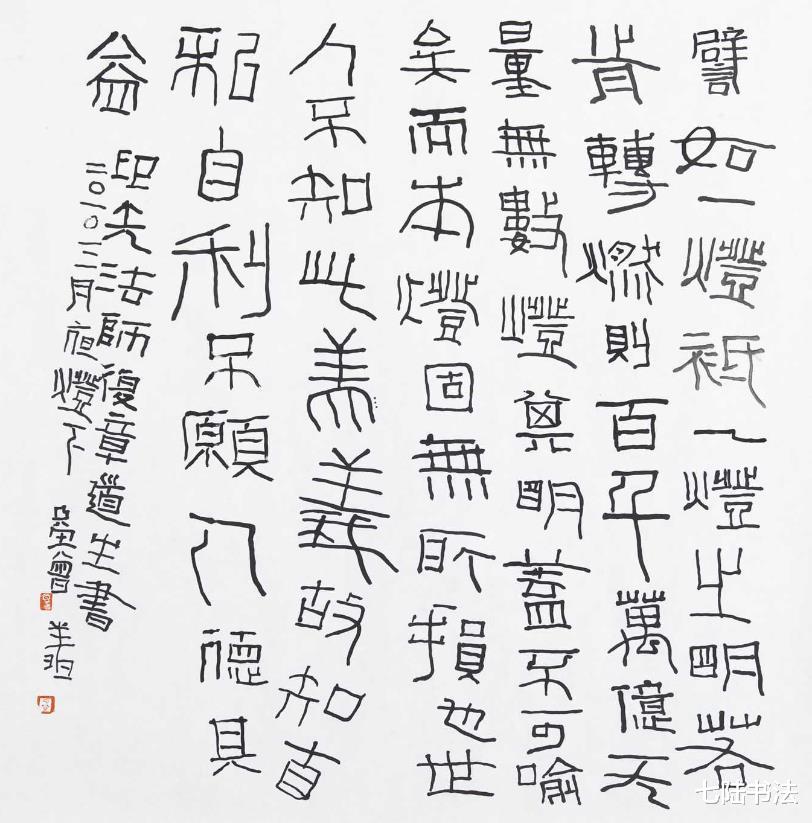 譬如一燈祇一燈之明若
肯轉燃則百千萬億无
量無數燈其明蓋不可喻
矣而本燈固無所損也世
人不知此美義故知自
私自利不願人德其
益
印光法師復章道生書
二〇一〇一二月夜燈下 曾
七陆书法